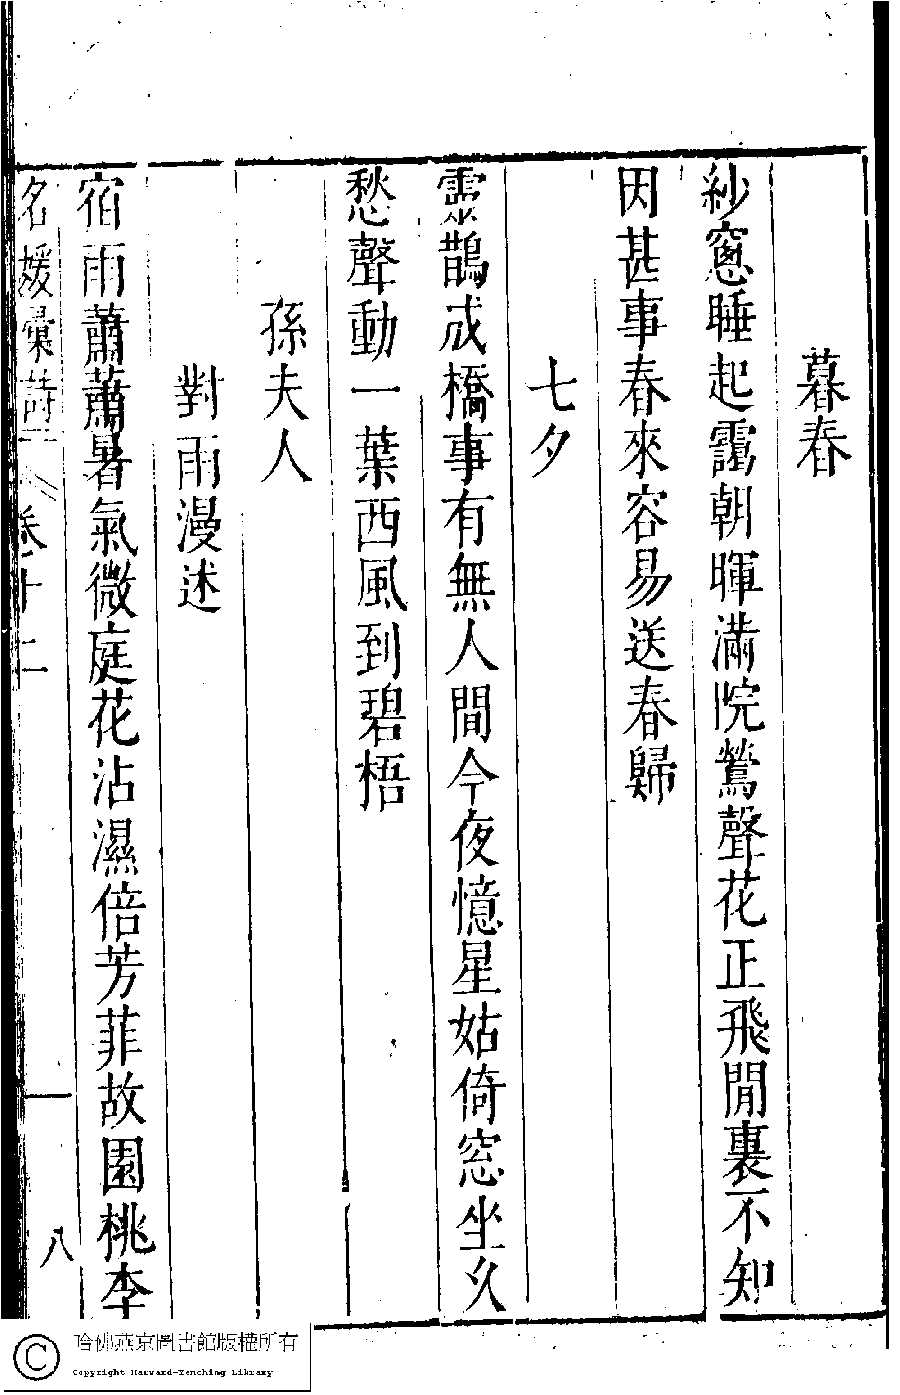 暮春
紗窻睡起靄朝暉滿院鶯聲花正飛閒裏不知
因甚事春來容易送春歸
七夕
靈鵲成橋事有無人間今夜憶星姑倚窓坐久
愁聲動一葉西風到碧梧
孫夫人
對雨漫述
宿雨蕭蕭暑氣微庭花沾濕倍芳菲故園桃李
名媛彙詩 卷十二 八
哈佛燕京圖書館版權所有
Copyright Harvard-Yenching Library